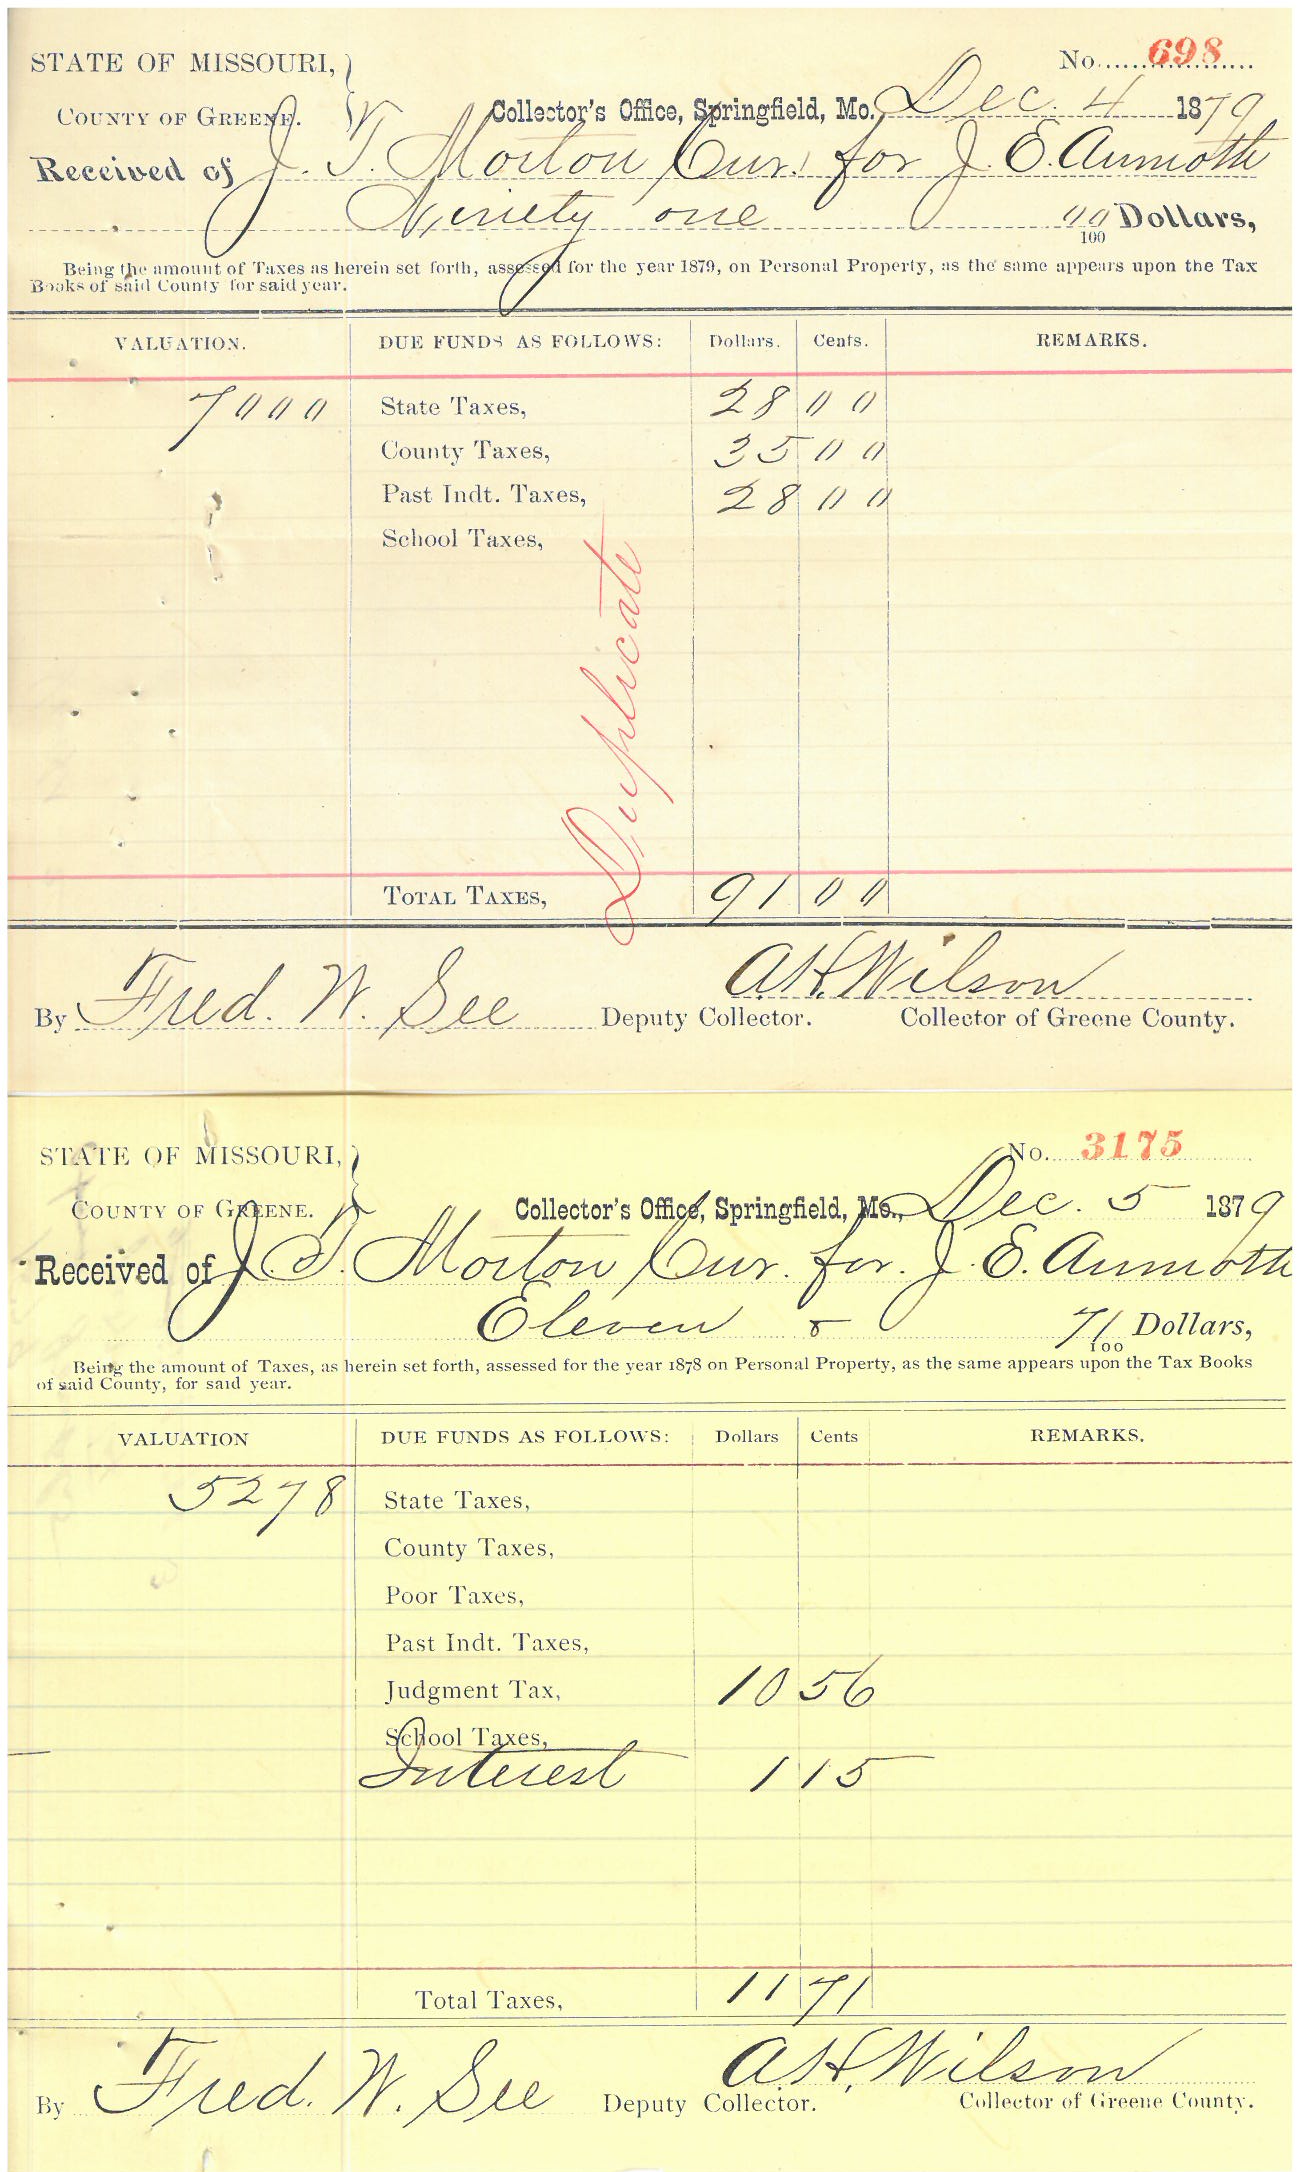 STATE OF MISSOURI,
No. 698
COUNTY OF GREENE.
Collector's Office, Springfield, Mo. Dec. 4 1879
Received of J. T. Morton Cur. for J. E. Aumoth
Ninety one 00/100 Dollars,
Being the amount of Taxes as herein set forth, assessed for the year 1879, on Personal Property, as the same appears upon the Tax
Books of said County for said year.
VALUATION. DUE FUNDS AS FOLLOWS: Dollars. Cents. REMARKS.
7000 State Taxes, 28 00
County Taxes, 35 00
Past Indt. Taxes, 28 00
School Taxes,
Duplicate
TOTAL TAXES, 91 00
By Fred. W. See Deputy Collector. A.H. Wilson Collector of Greene County.
STATE OF MISSOURI,
No. 3175
COUNTY OF GREENE.
Collector's Office, Springfield, Mo., Dec. 5 1879
Received of J. T. Morton Cur. for. J. E. Aumoth
Eleven & 71/100 Dollars,
Being the amount of Taxes, as herein set forth, assessed for the year 1878 on Personal Property, as the same appears upon the Tax Books
of said County, for said year.
VALUATION DUE FUNDS AS FOLLOWS: Dollars Cents REMARKS.
5278 State Taxes,
County Taxes,
Poor Taxes,
Past Indt. Taxes,
Judgment Tax, 10 56
School Taxes,
Interest 1 15
Total Taxes, 11 71
By Fred. W. See Deputy Collector. A.H. Wilson Collector of Greene County.